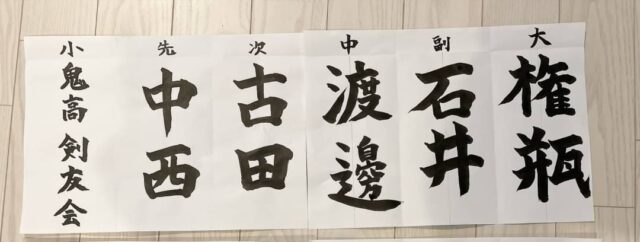 大 権瓶
副 石井
中 渡邊
次 古田
先 中西
小鬼高 剣友会